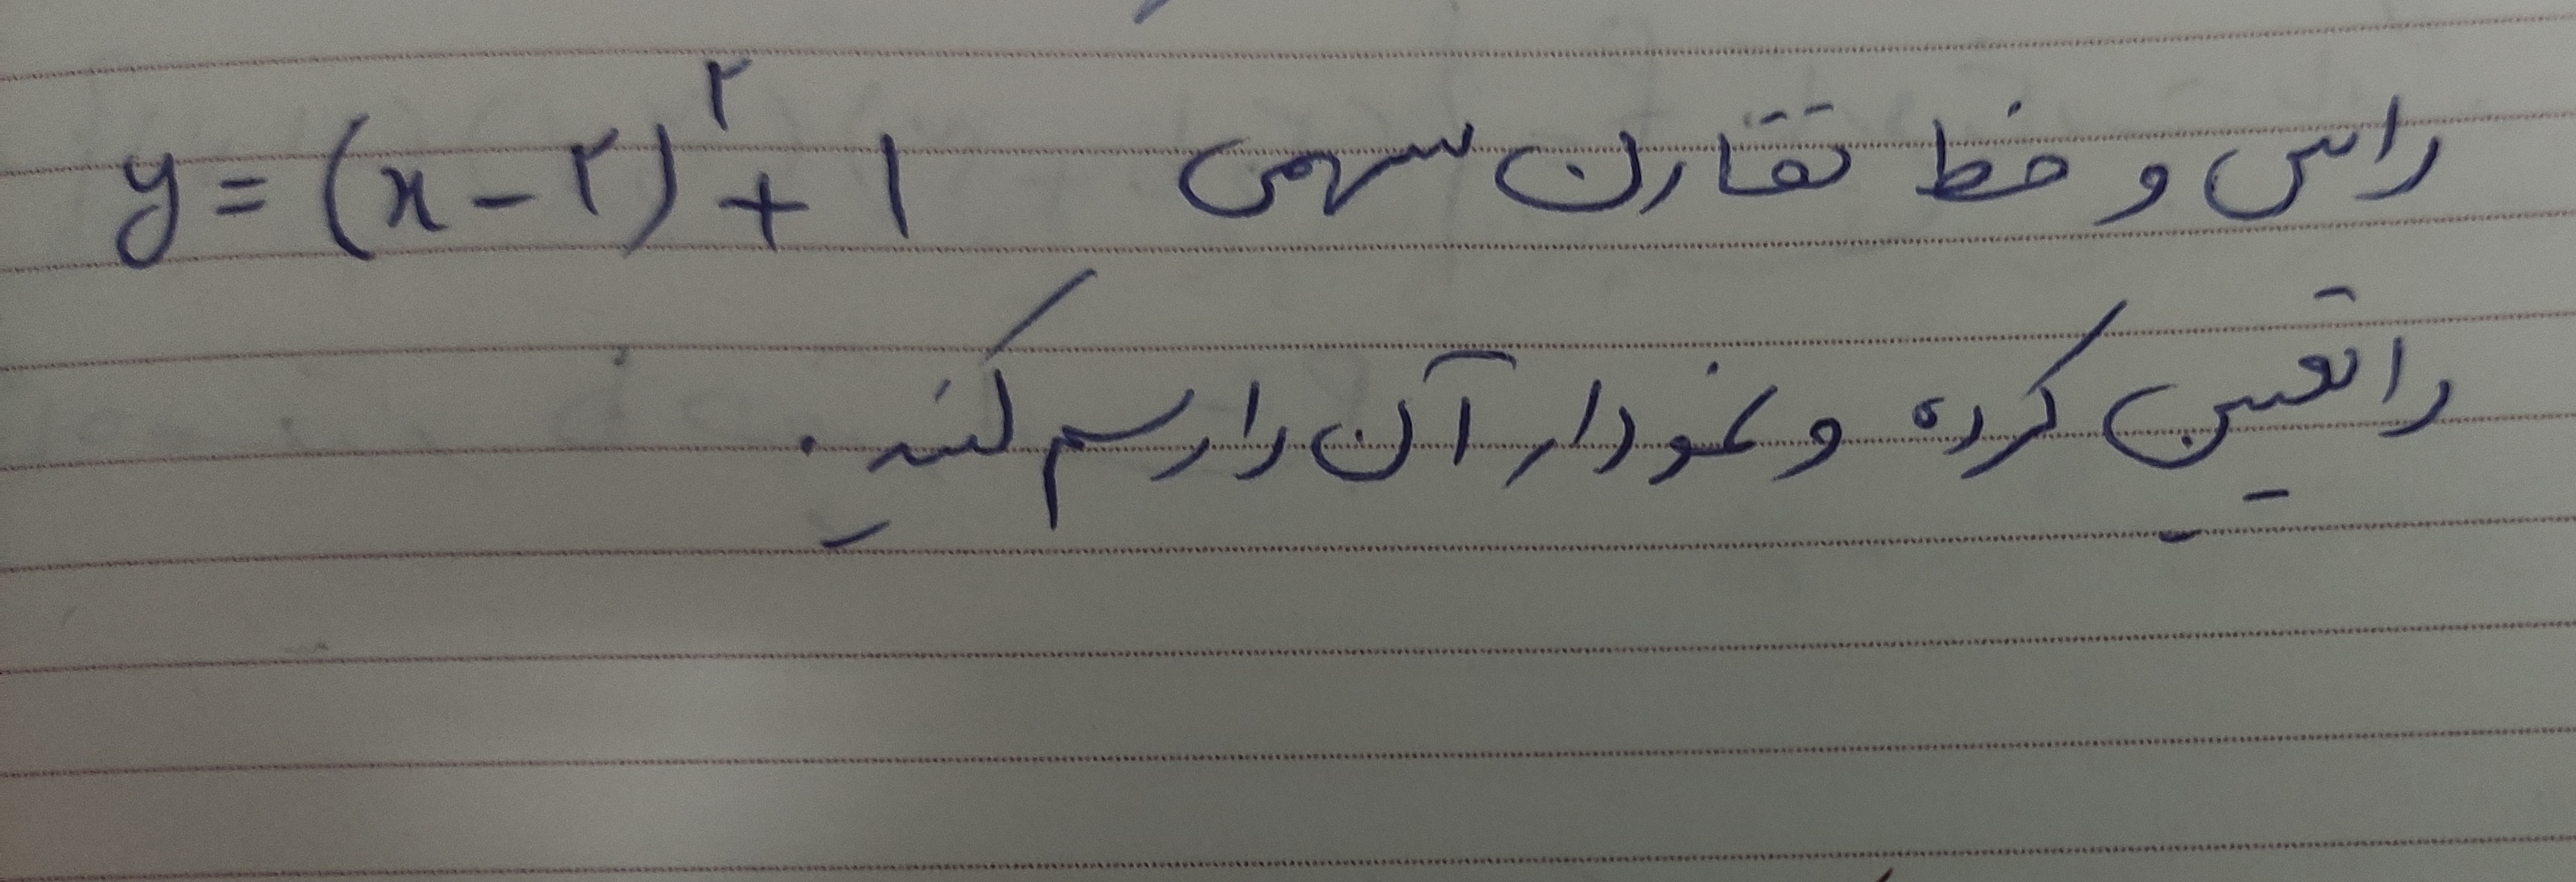 راس و خط تقارن سهمی y = (x - ۲)^۲ + ۱
را تعیین کرده و نمودار آن را رسم کنید.